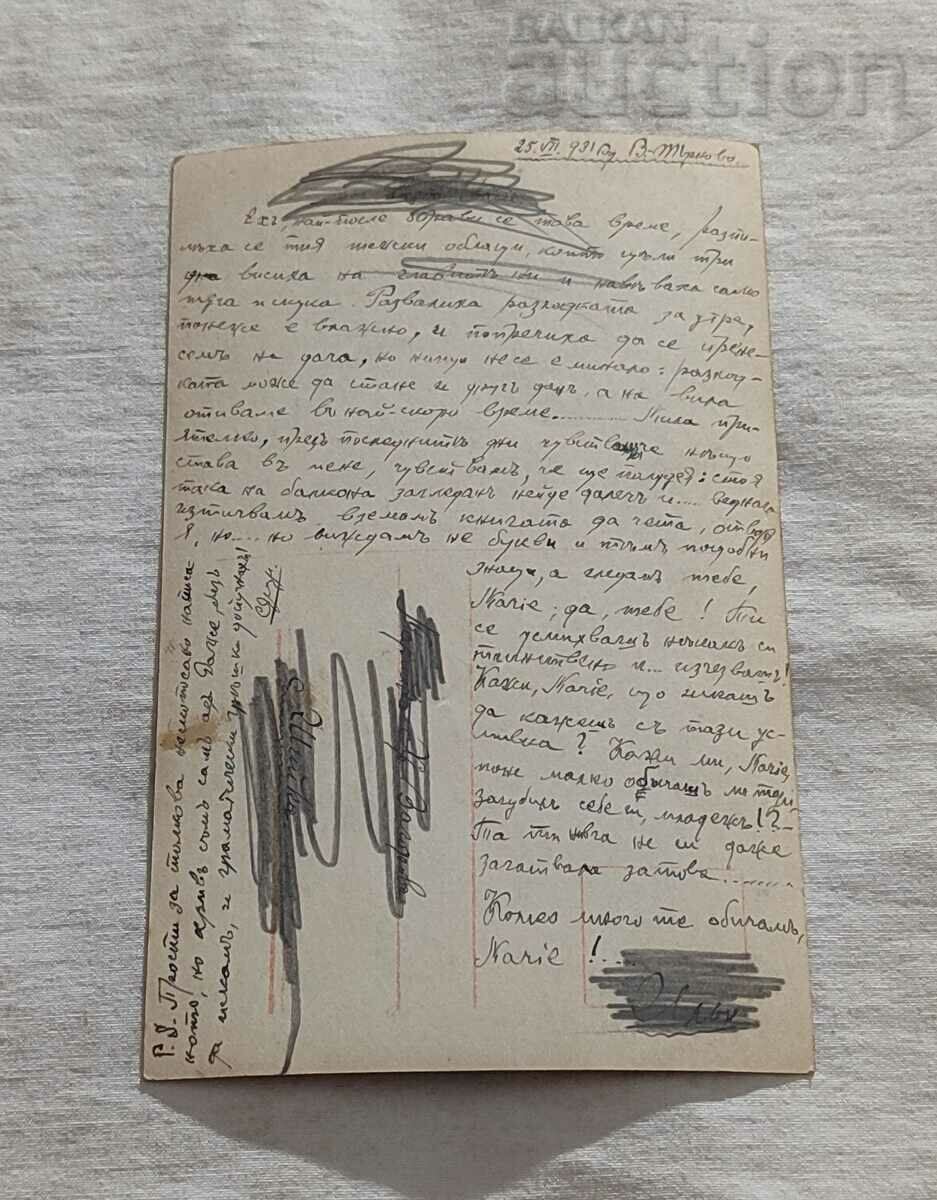 25.VII.931 год. В-Търново.
Ехъ, най-после оправи се това време, разпи-
лѣха се тия тежки облаци, които цѣли три
дна висиха на главитѣ ни и навѣваха само
тѫга и скука. Развалиха разходката за утре,
понеже е влажно, и попречиха да се прене-
семъ на дача, но нищо не се е минало: разход-
ката може да стане и другъ день, а на вила
отиваме въ най-скоро време........... Мила при-
ятелко, презъ последнитѣ дни нѣщо
става въ мене чувствамъ, че ще полудея: стоя
така на балкона загледанъ нейде далечъ и.... веднага
изтичвамъ вземамъ книгата да чета,
, но.... но виждамъ не букви и тѣмъ подобни
знаци, а гледамъ тебе,
Marie; да, тебе! Ти
се усмихвашъ нѣкакъ си
тайнствено и... изчезвашъ!
Кажи, Marie, що искашъ
да кажешъ съ тази ус-
мивка? Кажи ми, Marie,
поне малко обичашъ ли този
загубилъ себе си младежъ!?-
Та ти нѣга не си даже
загатвала затова.........
Колко много те обичамъ,
Marie!....
P.S.- Прости за толкова неспотасано написа-
ното, но кривъ съмъ самъ азъ. Даже, безъ
да искамъ, и граматически грѣшки допуснахъ!